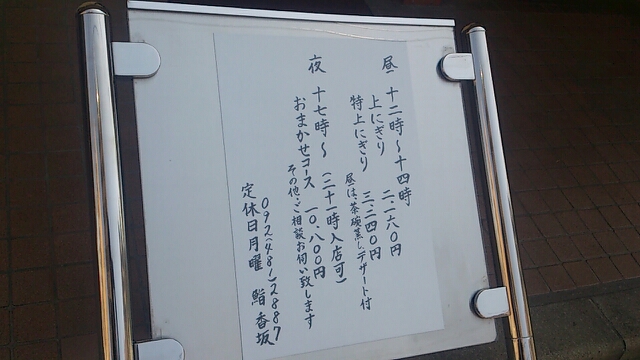 昼 十二時～十四時
上にぎり 二、一六〇円
特上にぎり 三、二四〇円
昼は、茶碗蒸し、デザート付
夜 十七時～(二十一時入店可)
おまかせコース 一〇、八〇〇円
その他・ご相談お伺い致します
092(481)2887
定休日月曜 鮨香坂